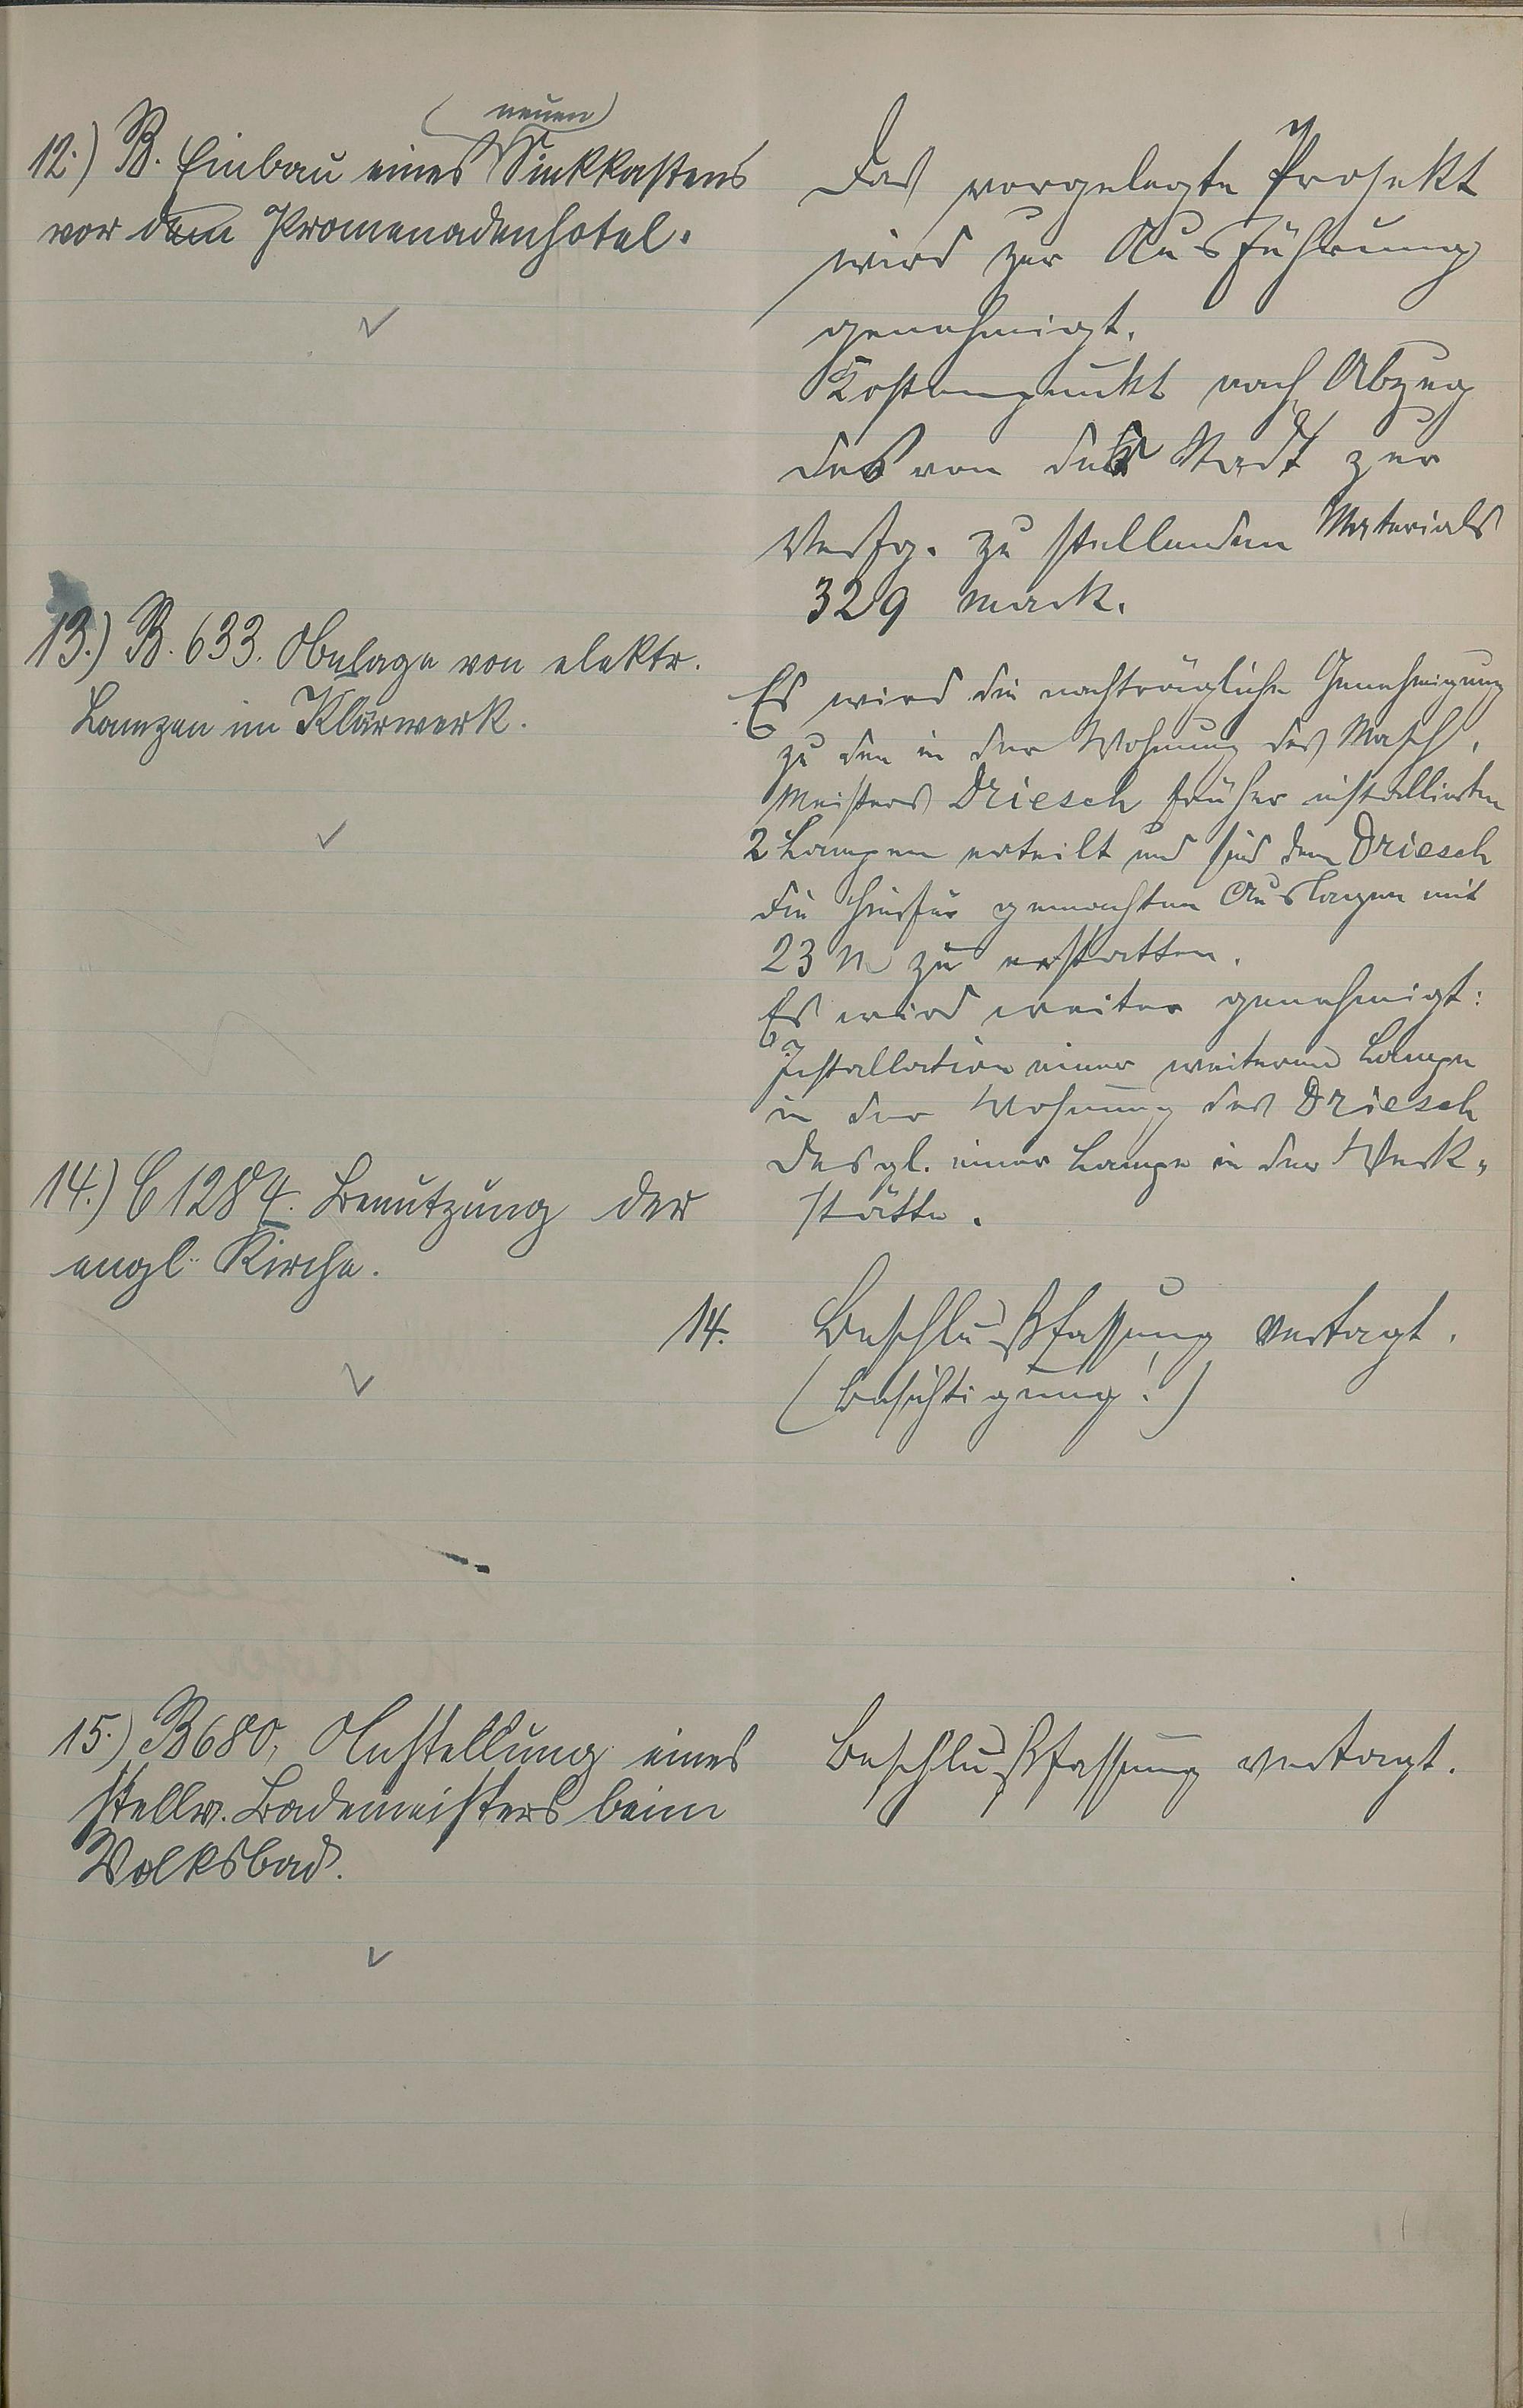 12.) B. Einbau eines (neuen) Sinkkastens
vor dem Promenadenhotel.
Das vorgelegte Projekt
wird zur Ausführung
genehmigt.
Kostenpunkt nach Abzug
des von der Stadt zur
Verfg. zu stellenden Materials
329 Mark.
13.) B. 633. Anlage von elektr.
Lampen im Klärwerk.
Es wird die nachträgliche Genehmigung
zu den in der Wohnung des Masch.
Meisters Driesch früher installierten
2 Lampen erteilt und sind dem Driesch
die hierfür gemachten Auslagen mit
23 M zu erstatten.
Es wird weiter genehmigt:
Installation einer weiteren Lampe
in der Wohnung des Driesch
desgl. einer Lampe in der Werk-
stätte.
14.) C 1284. Benutzung der
engl. Kirche.
14. Beschlußfassung vertagt.
(Besichtigung!)
15.) B 680, Anstellung eines
stellv. Bademeisters beim
Volksbad.
Beschlußfassung vertagt.